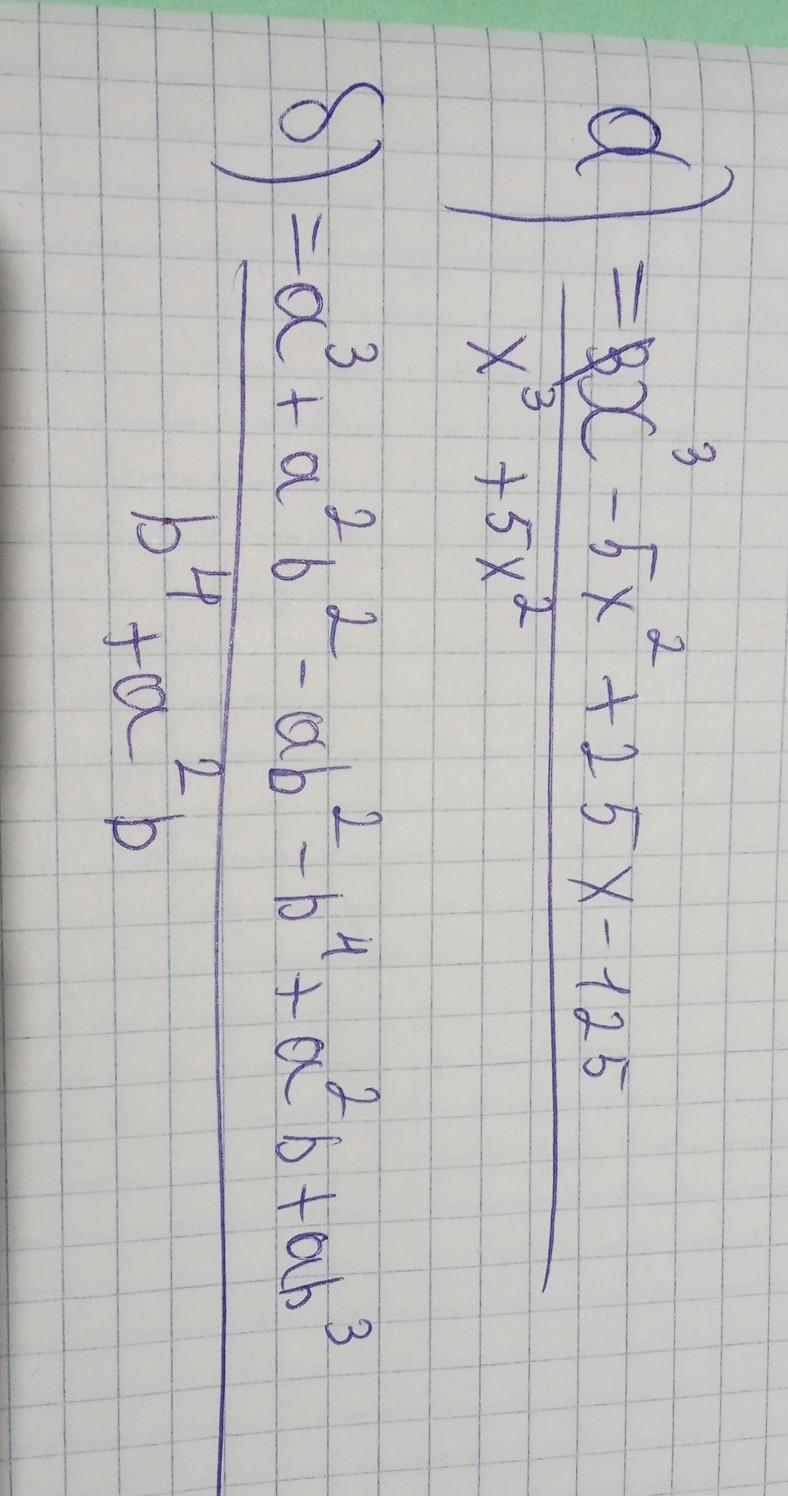 а) = x³ - 5x² + 25x - 125
x³ + 5x²
б) = a³ + a²b² - ab² - b⁴ + a²b + ab³
b⁴ + a²b